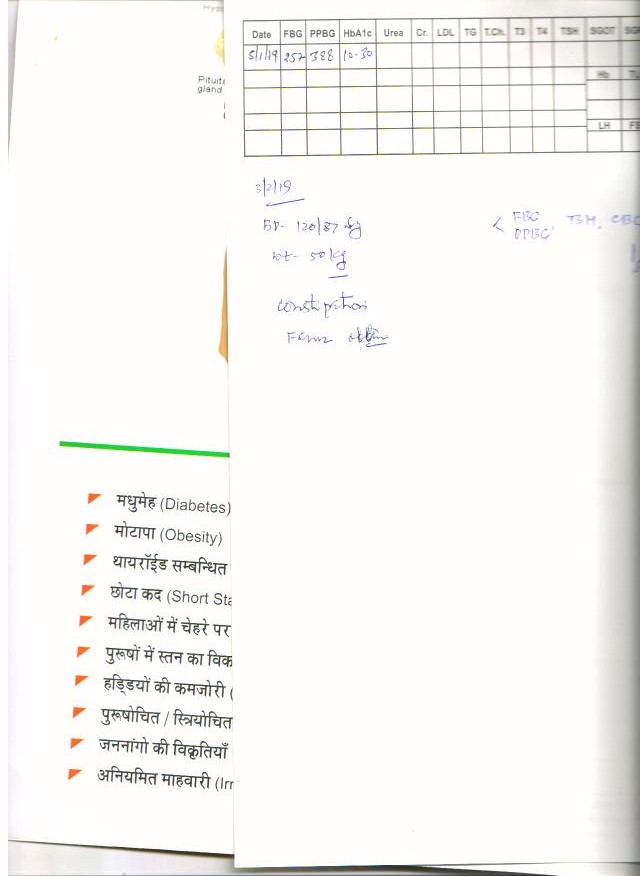 Hypo
Pituit
gland
Date FBG PPBG HbA1c Urea Cr. LDL TG T.Ch. T3 T4 TSH SGOT SG
5/1/19 257 388 10.30
Hb TL
LH FS
3/2/19
BP- 120/87
wt- 50 kg
FBG
PPBG, TSH, CBC
constipation
मधुमेह (Diabetes)
मोटापा (Obesity)
थायरॉईड सम्बन्धित
छोटा कद (Short Sta
महिलाओं में चेहरे पर
पुरूषों में स्तन का विक
हड्डियों की कमजोरी (
पुरूषोचित / स्त्रियोचित
जननांगो की विकृतियाँ
अनियमित माहवारी (Irr